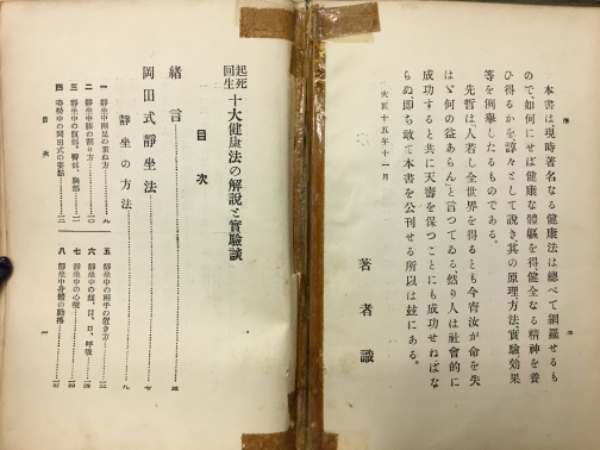 序
本書は現時著名なる健康法は總べて網羅せるも
ので、如何にせば健康な體軀を得健全なる精神を養
ひ得るかを諄々として說き其の原理、方法、實驗、効果
等を例擧したるものである。
先哲は人若し全世界を得るとも今宵汝が命を失
はゞ何の益あらん」と言つてゐる、然り人は社會的に
成功すると共に天壽を保つことにも成功せねばな
らぬ即ち敢て本書を公刊せる所以は玆にある。
大正十五年十一月
著者識
起死回生 十大健康法の解說と實驗談
目次
緒言
岡田式靜坐法
靜坐の方法
一 靜坐中兩足の重ね方
二 靜坐中膝の割り方
三 靜坐中の腹部、臀部、胸部
四 姿勢中の岡田式の要點
五 靜坐中の兩手の置き方
六 靜坐中の顏、目、口、呼吸
七 靜坐中の心境
八 靜坐中身體の動搖
目次
一